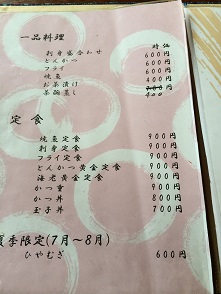 一品料理
刺身盛合わせ 時価
とんかつ 600円
フライ 600円
焼魚 600円
お茶漬け
茶碗蒸し 400円
定食
焼魚定食 900円
刺身定食 900円
フライ定食 900円
とんかつ黄金定食 900円
海老黄金定食 900円
かつ重 900円
かつ丼 800円
玉子丼
夏季限定(7月～8月)
ひやむぎ 600円